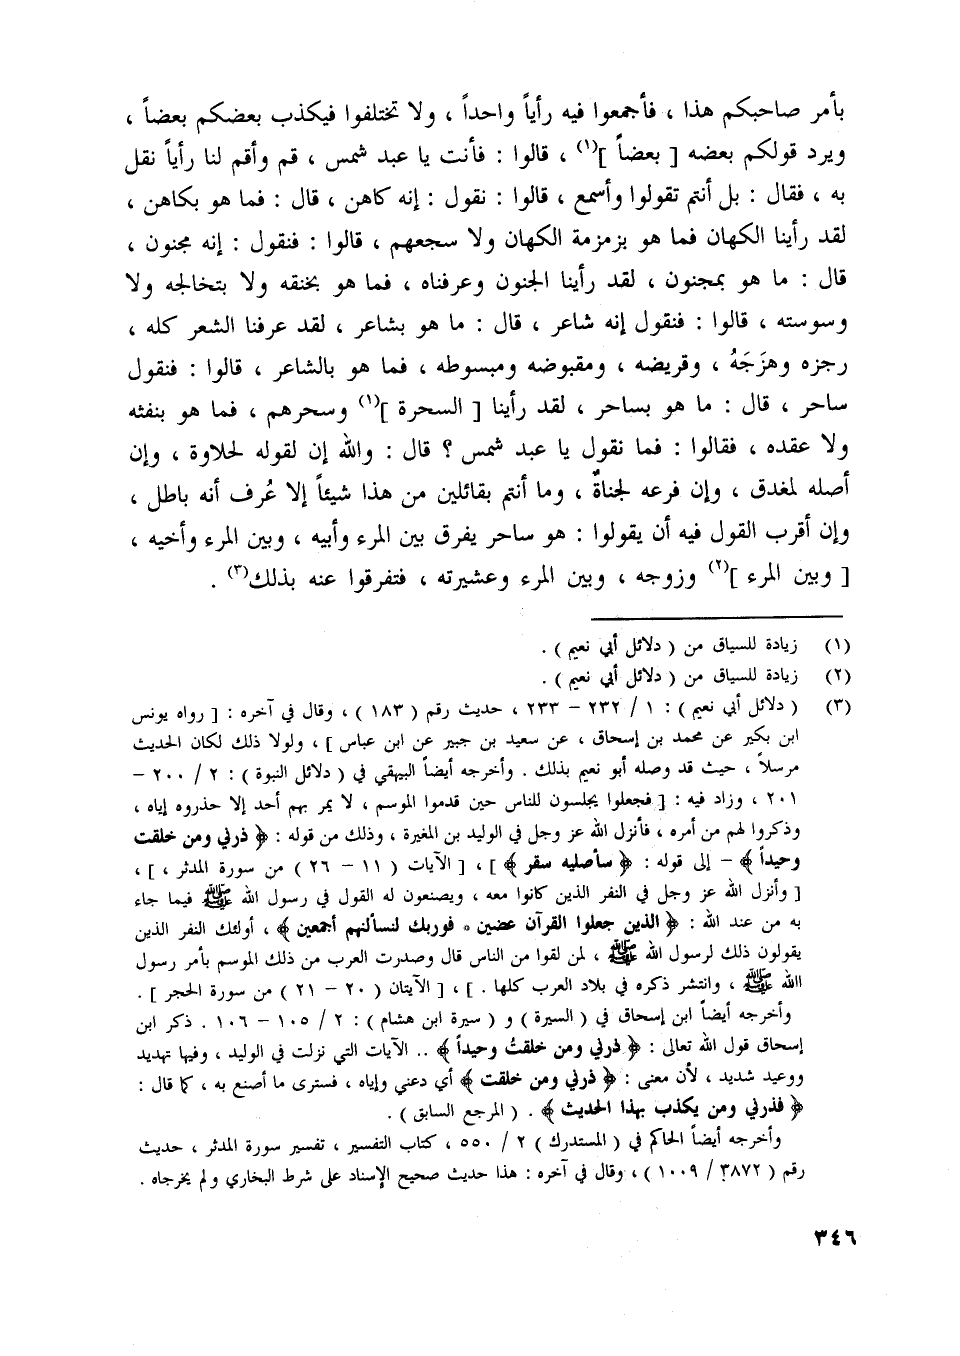 بأمر صاحبكم هذا ، فأجمعوا فيه رأياً واحداً ، ولا تختلفوا فيكذب بعضكم بعضاً ،
ويرد قولكم بعضه [ بعضاً ](١) ، قالوا : فأنت يا عبد شمس ، قم وأقم لنا رأياً نقل
به ، فقال : بل أنتم تقولوا وأسمع ، قالوا : نقول : إنه كاهن ، قال : فما هو بكاهن ،
لقد رأينا الكهان فما هو بزمزمة الكهان ولا سجعهم ، قالوا : فنقول : إنه مجنون ،
قال : ما هو بمجنون ، لقد رأينا الجنون وعرفناه ، فما هو بخنقه ولا بتخالجه ولا
وسوسته ، قالوا : فنقول إنه شاعر ، قال : ما هو بشاعر ، لقد عرفنا الشعر كله ،
رجزه وهزَجَهُ ، وقريضه ، ومقبوضه ومبسوطه ، فما هو بالشاعر ، قالوا : فنقول
ساحر ، قال : ما هو بساحر ، لقد رأينا [ السحرة ](١) وسحرهم ، فما هو بنفثه
ولا عقده ، فقالوا : فما نقول يا عبد شمس ؟ قال : والله إن لقوله لحلاوة ، وإن
أصله لمغدق ، وإن فرعه لجناةٌ ، وما أنتم بقائلين من هذا شيئاً إلا عُرف أنه باطل ،
وإن أقرب القول فيه أن يقولوا : هو ساحر يفرق بين المرء وأبيه ، وبين المرء وأخيه ،
[ وبين المرء ](٢) وزوجه ، وبين المرء وعشيرته ، فتفرقوا عنه بذلك(٣) .
(١) زيادة للسياق من ( دلائل أبي نعيم ) .
(٢) زيادة للسياق من ( دلائل أبي نعيم ) .
(٣) ( دلائل أبي نعيم ) : ١ / ٢٣٢ – ٢٣٣ ، حديث رقم ( ١٨٣ ) ، وقال في آخره : [ رواه يونس
ابن بكير عن محمد بن إسحاق ، عن سعيد بن جبير عن ابن عباس ] ، ولولا ذلك لكان الحديث
مرسلاً ، حيث قد وصله أبو نعيم بذلك . وأخرجه أيضاً البيهقي في ( دلائل النبوة ) : ٢ / ٢٠٠ –
٢٠١ ، وزاد فيه : [ فجعلوا يجلسون للناس حين قدموا الموسم ، لا يمر بهم أحد إلا حذروه إياه ،
وذكروا لهم من أمره ، فأنزل الله عز وجل في الوليد بن المغيرة ، وذلك من قوله : ﴿ ذرني ومن خلقت
وحيداً ﴾ – إلى قوله : ﴿ سأصليه سقر ﴾ ] ، [ الآيات ( ١١ – ٢٦ ) من سورة المدثر ، ] ،
[ وأنزل الله عز وجل في النفر الذين كانوا معه ، ويصنعون له القول في رسول الله ﷺ فيما جاء
به من عند الله : ﴿ الذين جعلوا القرآن عضين * فوربك لنسألنهم أجمعين ﴾ ، أولئك النفر الذين
يقولون ذلك لرسول الله ﷺ ، لمن لقوا من الناس قال وصدرت العرب من ذلك الموسم بأمر رسول
االله ﷺ ، وانتشر ذكره في بلاد العرب كلها . ] ، [ الآيتان ( ٢٠ – ٢١ ) من سورة الحجر ] .
وأخرجه أيضاً ابن إسحاق في ( السيرة ) و ( سيرة ابن هشام ) : ٢ / ١٠٥ – ١٠٦ . ذكر ابن
إسحاق قول الله تعالى : ﴿ ذرني ومن خلقتُ وحيداً ﴾ .. الآيات التي نزلت في الوليد ، وفيها تهديد
ووعيد شديد ، لأن معنى : ﴿ ذرني ومن خلقت ﴾ أي دعني وإياه ، فسترى ما أصنع به ، كما قال :
﴿ فذرني ومن يكذب بهذا الحديث ﴾ . ( المرجع السابق ) .
وأخرجه أيضاً الحاكم في ( المستدرك ) ٢ / ٥٥٠ ، كتاب التفسير ، تفسير سورة المدثر ، حديث
رقم ( ٣٨٧٢ / ١٠٠٩ ) ، وقال في آخره : هذا حديث صحيح الإسناد على شرط البخاري ولم يخرجاه .
٣٤٦